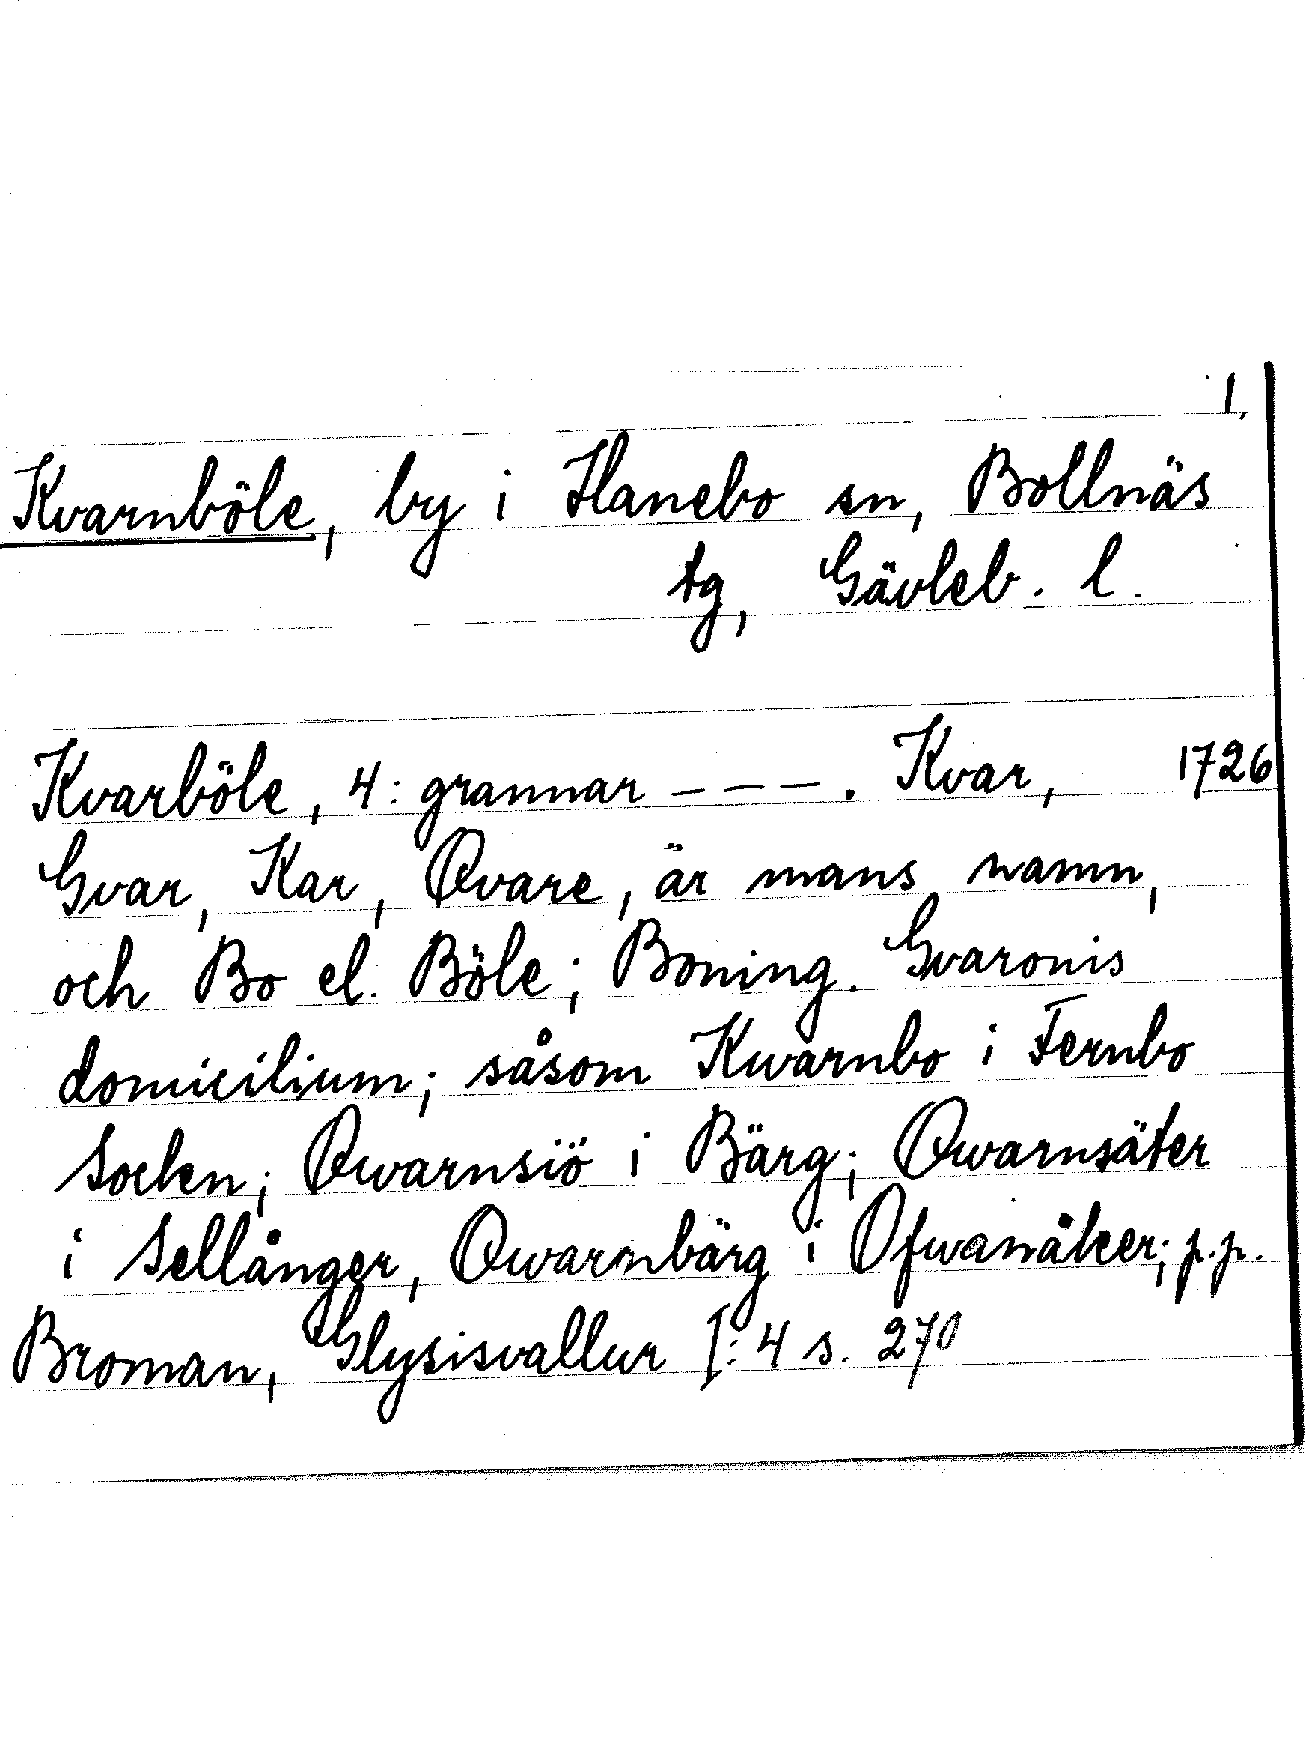 1,
Kvarnböle, by i Hanebo sn, Bollnäs
tg, Gävleb. l.
Kvarböle, 4: grannar – – – . Kvar, 1726
Gvar, Kar, Qvare, är mans namn,
och Bo el. Böle; Boning. Gvaronis
domicilium; såsom Kwarnbo i Fernbo
Socken; Qwarnsiö i Bärg; Qwarnsäter
i Sellånger, Qwarnbärg i Ofwanåker; p.p.
Broman, Glysisvallur I: 4 s. 270